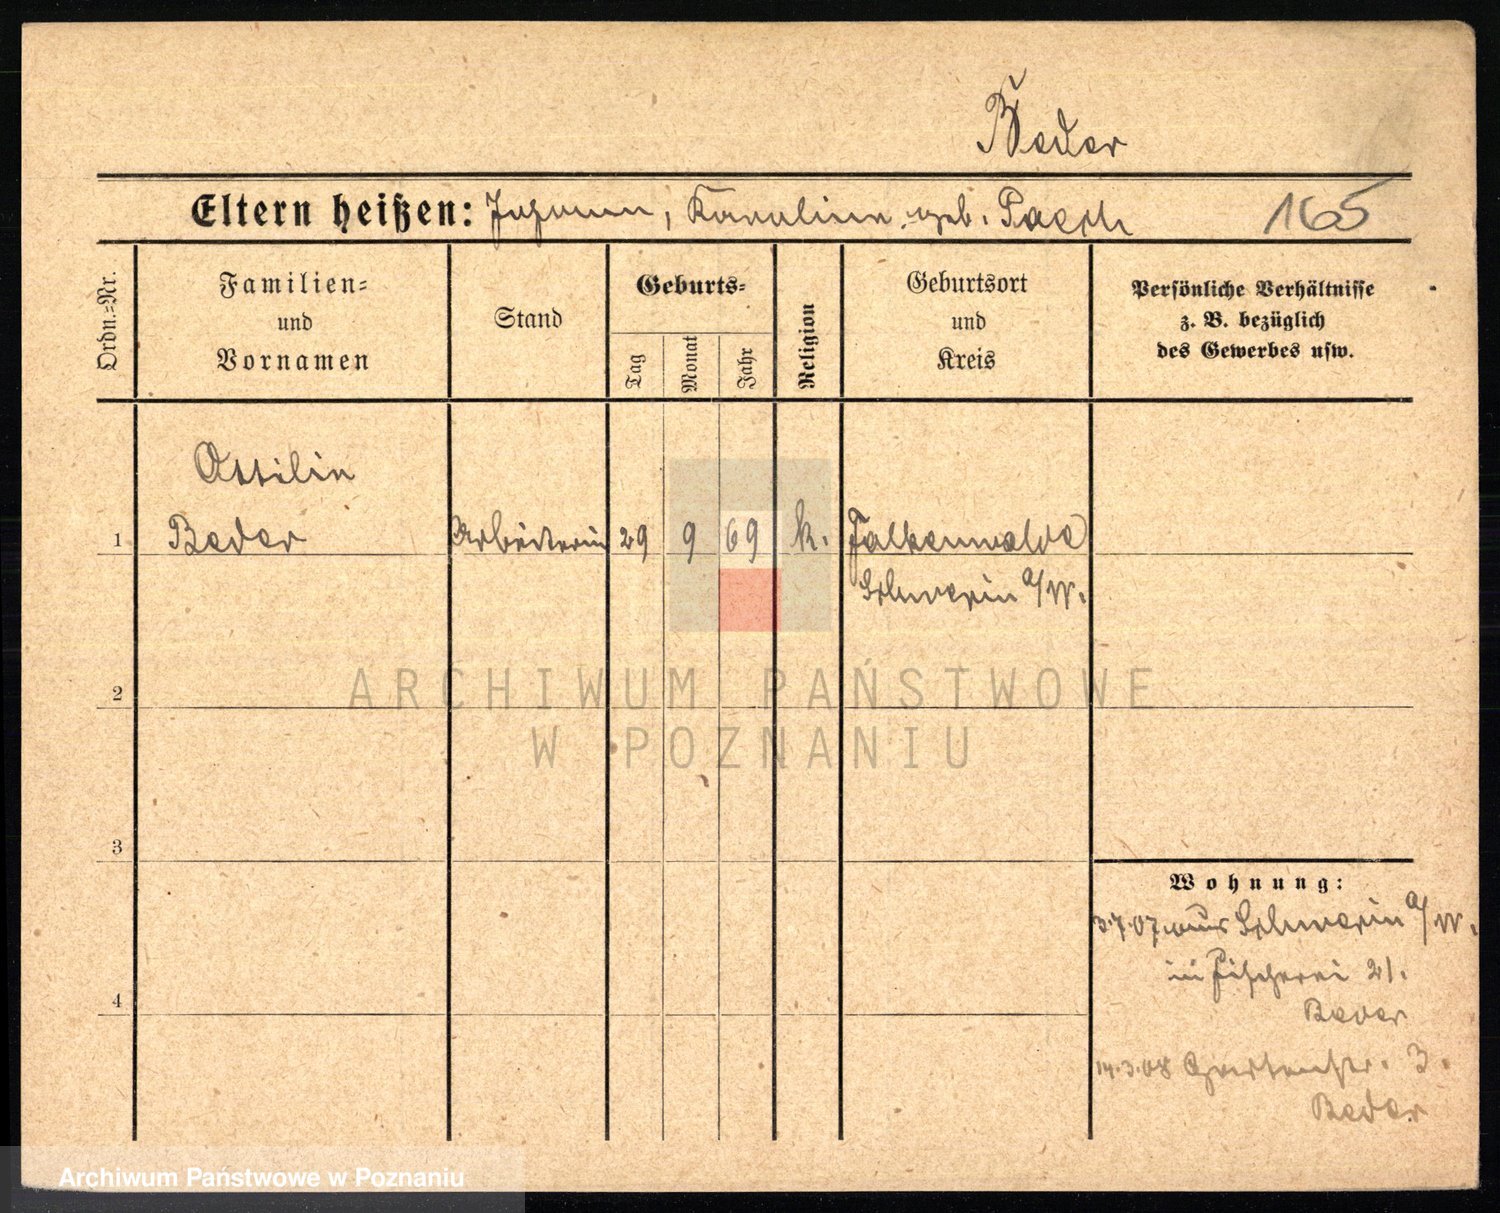 Beder
Eltern heißen: Johann, Karoline geb. Paesch
165
Ordn.-Nr.
Familien-
und
Vornamen
Stand
Geburts-
Tag
Monat
Jahr
Religion
Geburtsort
und
Kreis
Persönliche Verhältnisse
z. B. bezüglich
des Gewerbes usw.
Ottilie
1 Beder Arbeiterin 29 9 69 k. Falkenwalde
Schwerin a/W.
2
3
4
Wohnung:
3.7.07. aus Schwerin a/W.
in Fischerei 21.
Beder
14.3.08 Gartenstr. 3.
Beder
ARCHIWUM PAŃSTWOWE
W POZNANIU
Archiwum Państwowe w Poznaniu